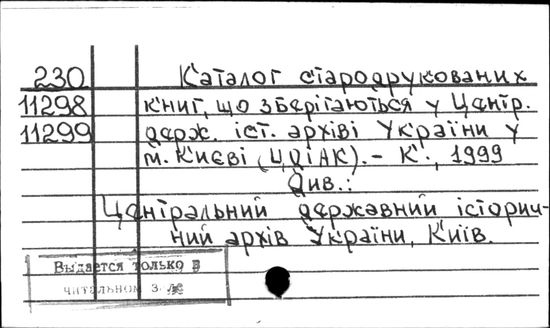 230 Каталог стародрукованих
11298 книг, що зберігаються у Центр.
11299 держ. іст. архіві України у
м. Києві (ЦДІАК). – К., 1999
Див.:
Центральний державний історич-
ний архів України, Київ.
Выдается только в
читальном з